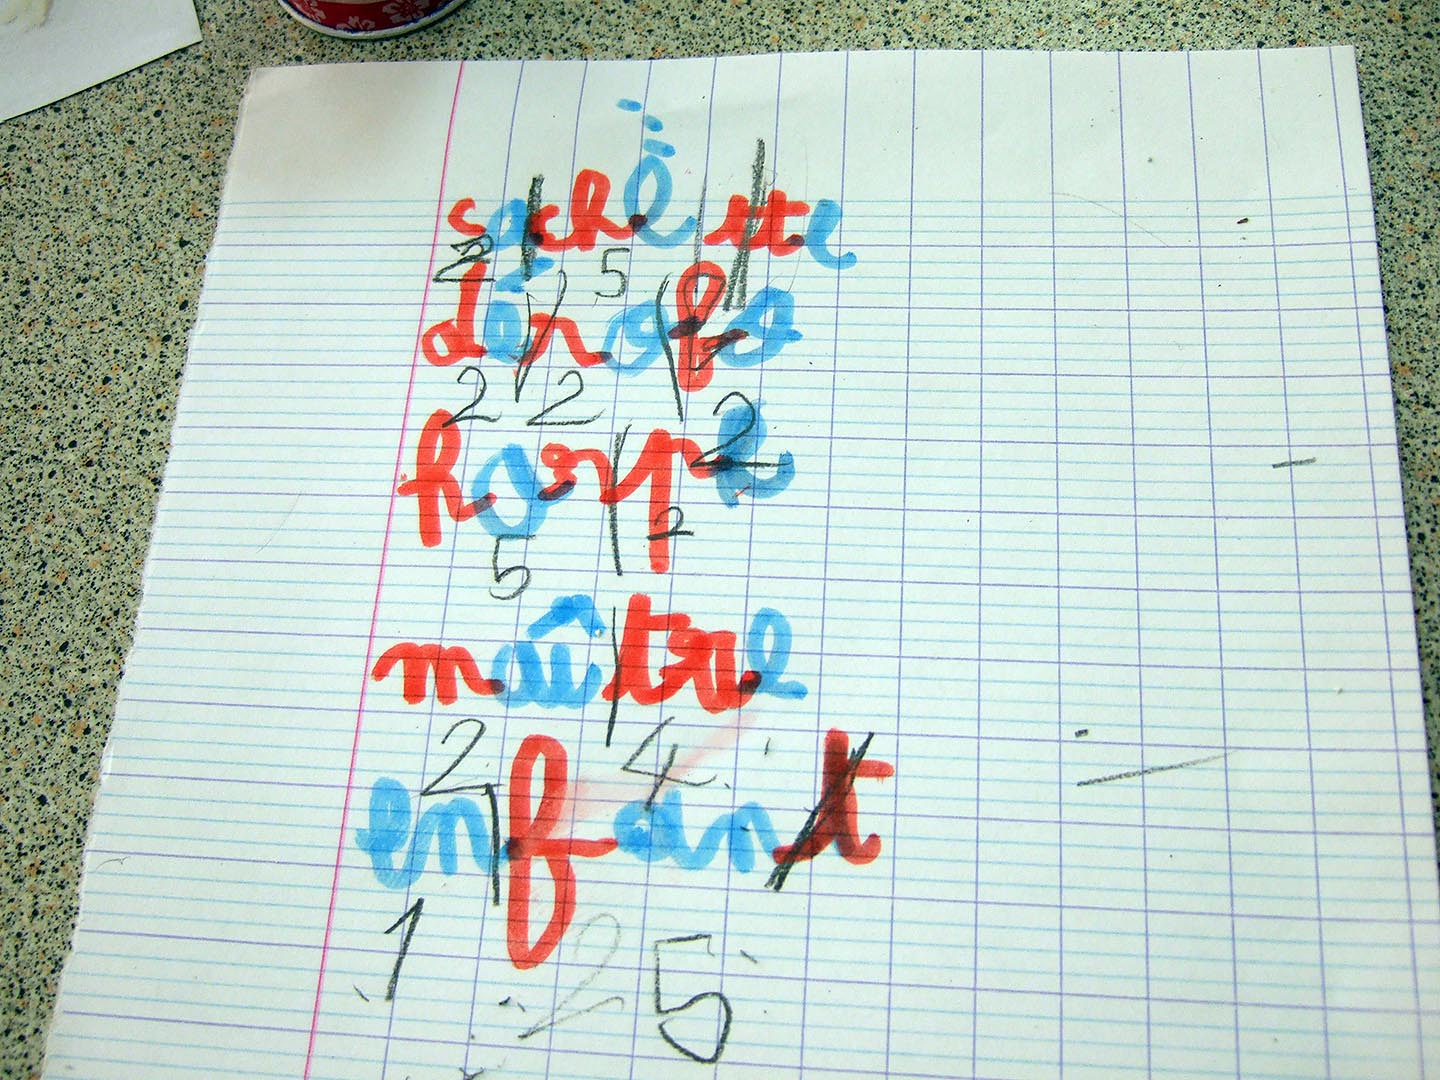 sachètte
2 5
2 2 2
harpe
5 2
maître
2 4
enfant
1 2 5